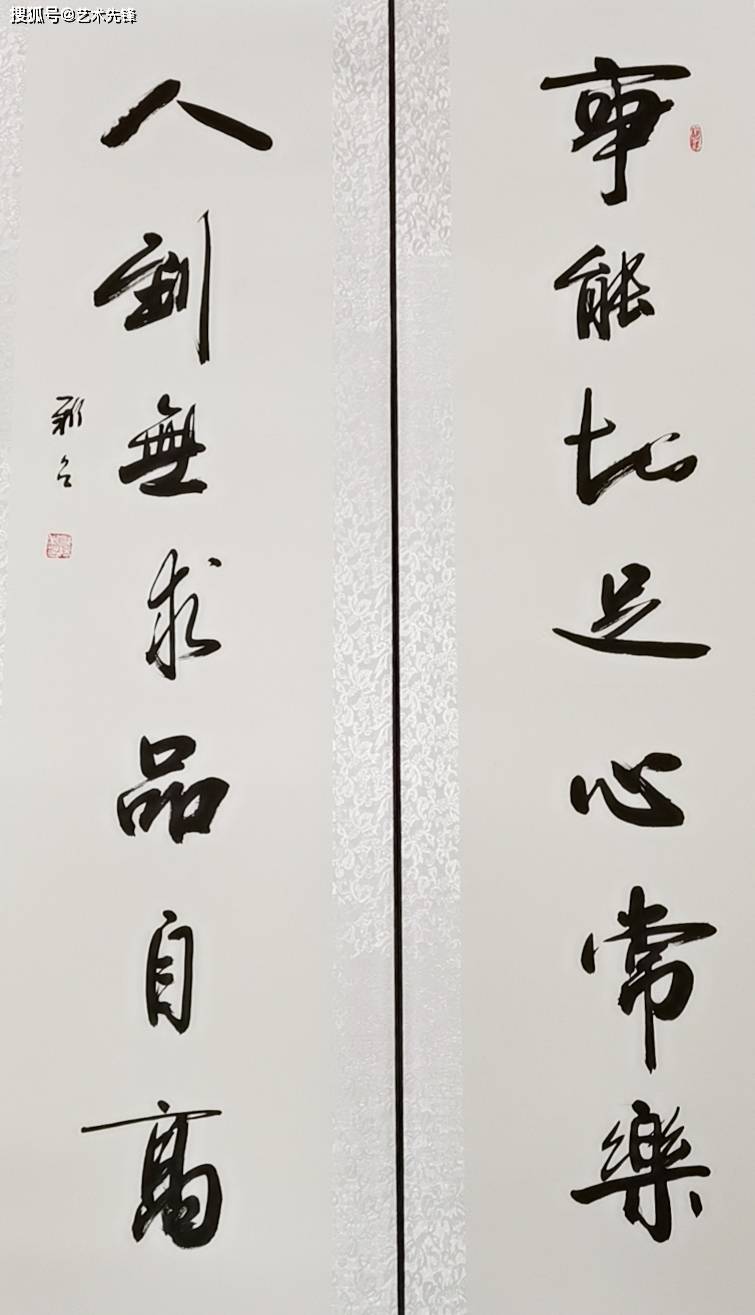 搜狐号@艺术先锋
事能知足心常樂
人到無求品自高